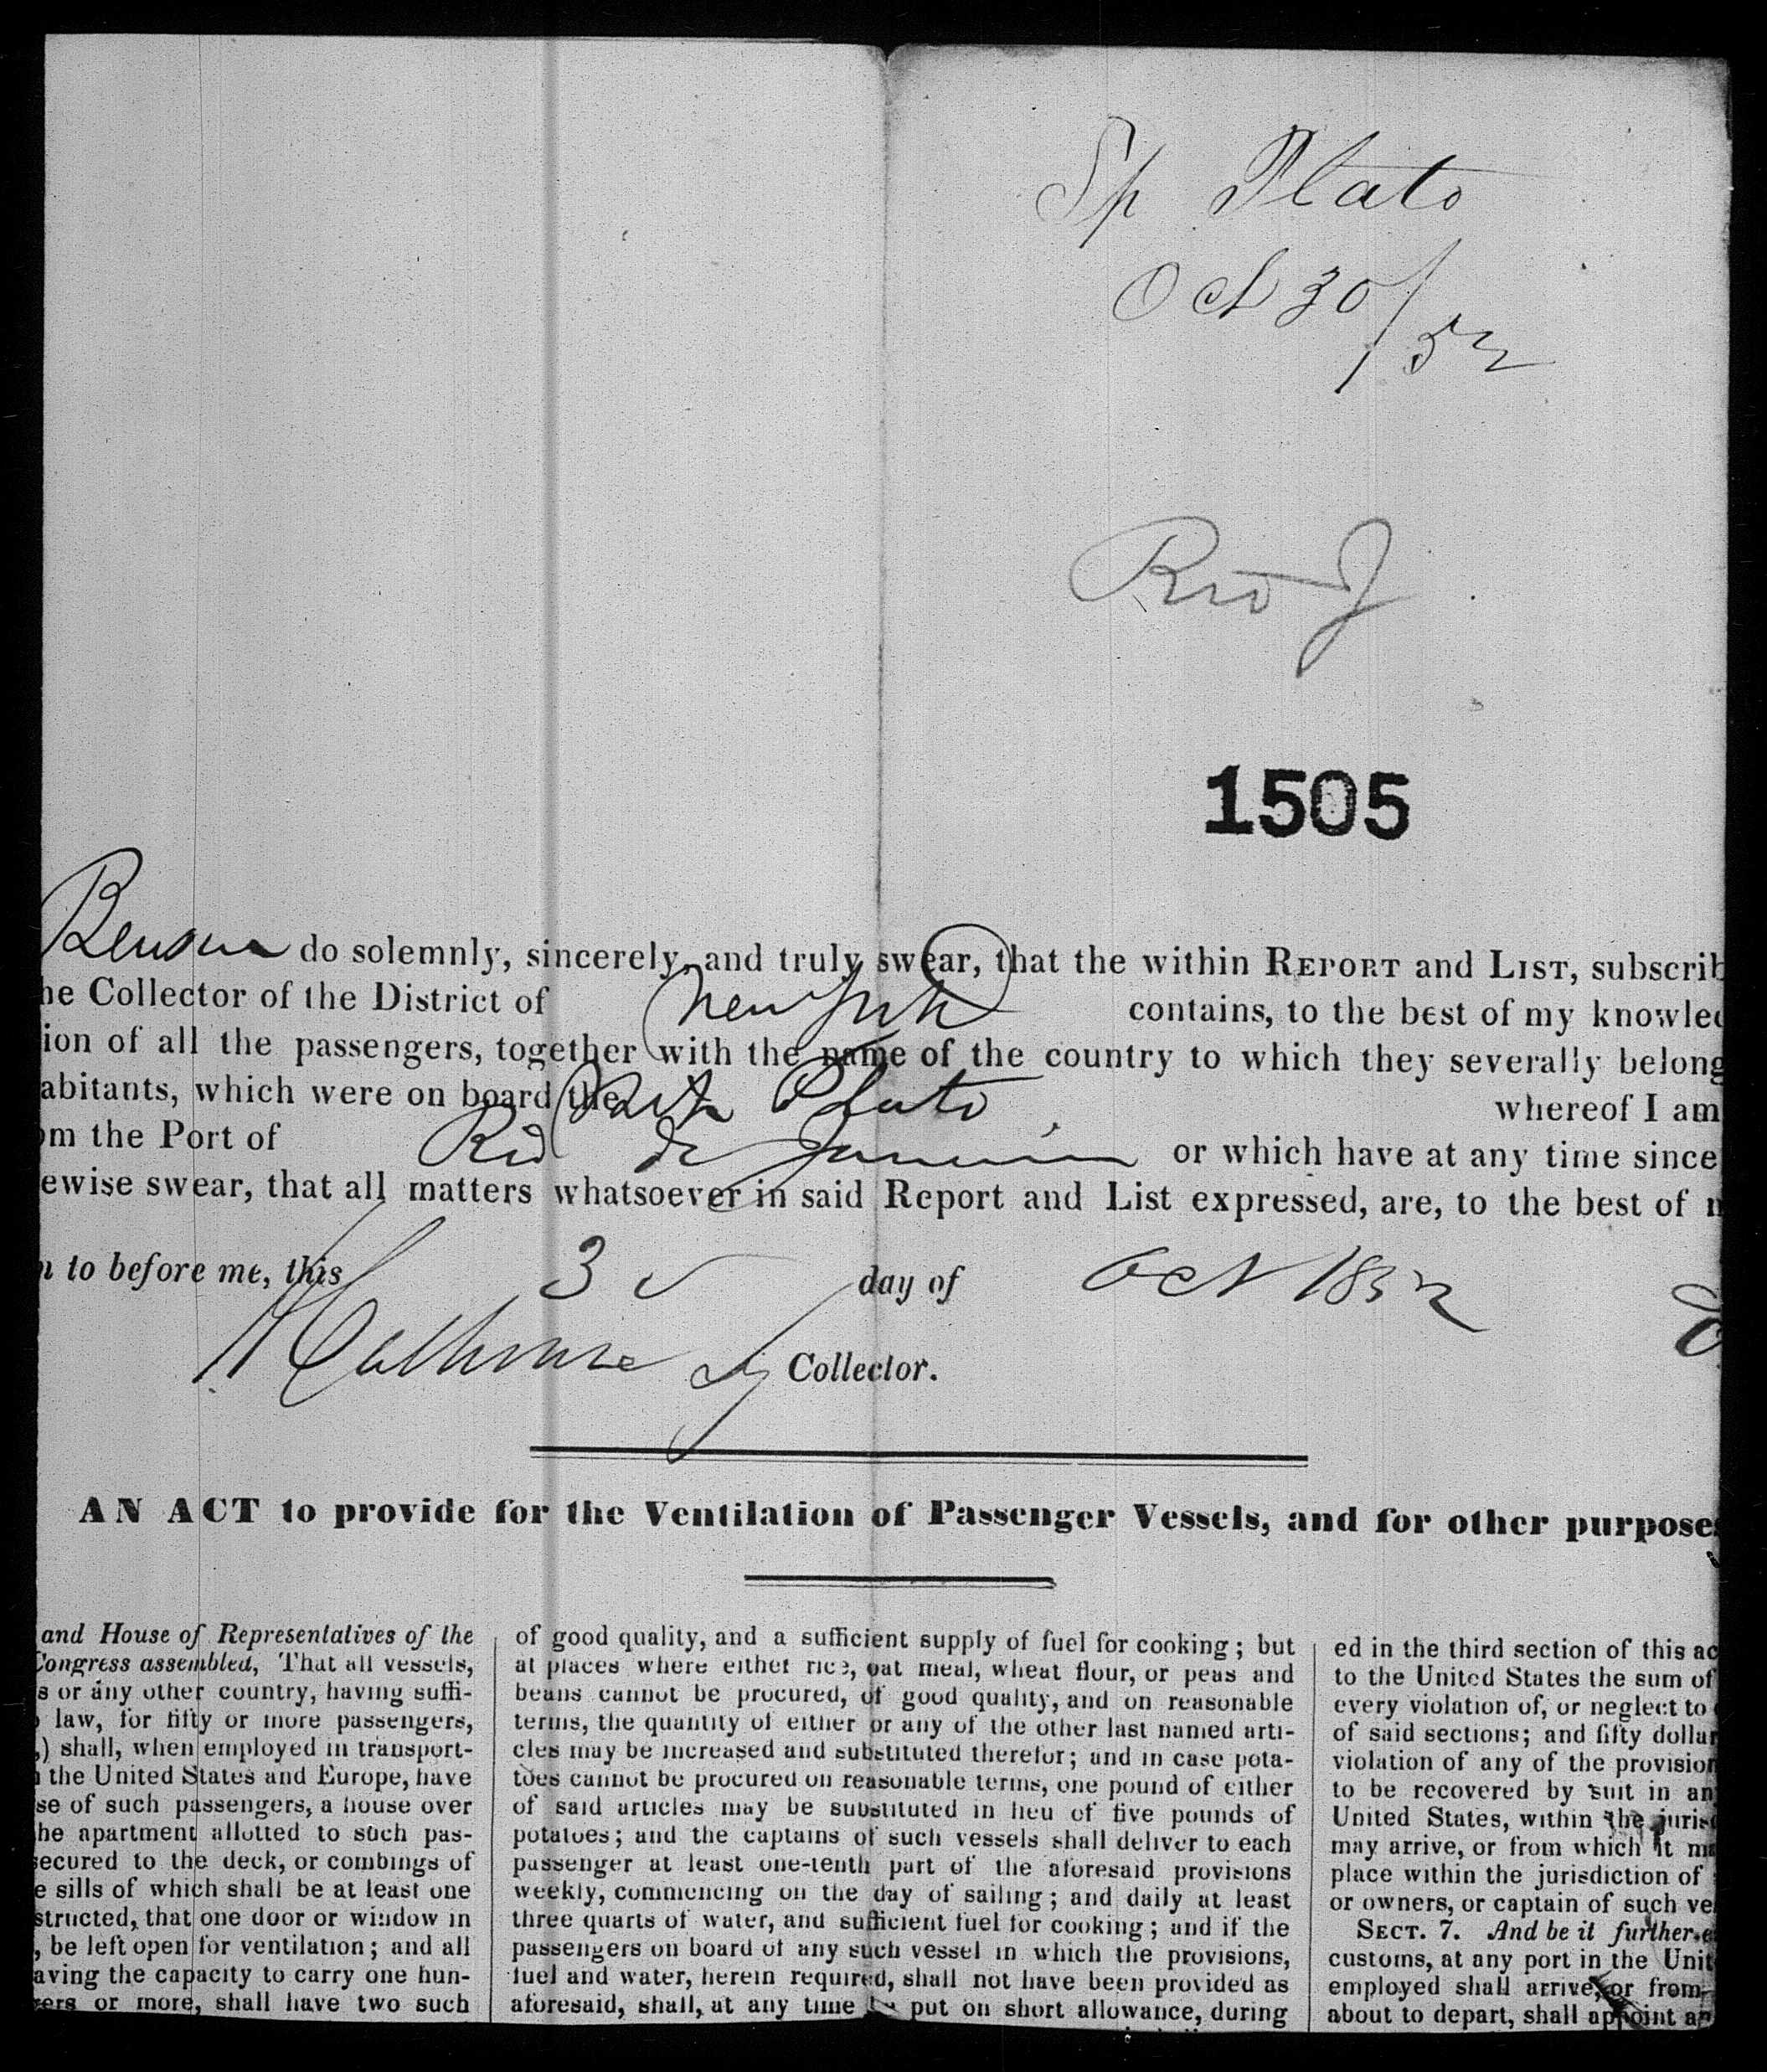 Sp Plato
Oct 30/52
Rio J
1505
do solemnly, sincerely, and truly swear, that the within REPORT and LIST, subscrib
he Collector of the District of New York contains, to the best of my knowled
ion of all the passengers, together with the name of the country to which they severally belong
abitants, which were on board the Plato whereof I am
om the Port of Rio de Janeiro or which have at any time since
ewise swear, that all matters whatsoever in said Report and List expressed, are, to the best of m
n to before me, this 30 day of Oct 1852
Collector.
AN ACT to provide for the Ventilation of Passenger Vessels, and for other purposes
and House of Representatives of the
Congress assembled, That all vessels,
s or any other country, having suffi-
o law, for fifty or more passengers,
,) shall, when employed in transport-
n the United States and Europe, have
se of such passengers, a house over
he apartment allotted to such pas-
secured to the deck, or combings of
e sills of which shall be at least one
structed, that one door or window in
, be left open for ventilation; and all
aving the capacity to carry one hun-
gers or more, shall have two such
of good quality, and a sufficient supply of fuel for cooking; but
at places where either rice, oat meal, wheat flour, or peas and
beans cannot be procured, of good quality, and on reasonable
terms, the quantity of either or any of the other last named arti-
cles may be increased and substituted therefor; and in case pota-
toes cannot be procured on reasonable terms, one pound of either
of said articles may be substituted in lieu of five pounds of
potatoes; and the captains of such vessels shall deliver to each
passenger at least one-tenth part of the aforesaid provisions
weekly, commencing on the day of sailing; and daily at least
three quarts of water, and sufficient fuel for cooking; and if the
passengers on board of any such vessel in which the provisions,
fuel and water, herein required, shall not have been provided as
aforesaid, shall, at any time be put on short allowance, during
ed in the third section of this ac
to the United States the sum of
every violation of, or neglect to
of said sections; and fifty dollar
violation of any of the provision
to be recovered by suit in an
United States, within the juris
may arrive, or from which it ma
place within the jurisdiction of
or owners, or captain of such ve
SECT. 7. And be it further e
customs, at any port in the Unit
employed shall arrive, or from
about to depart, shall appoint an